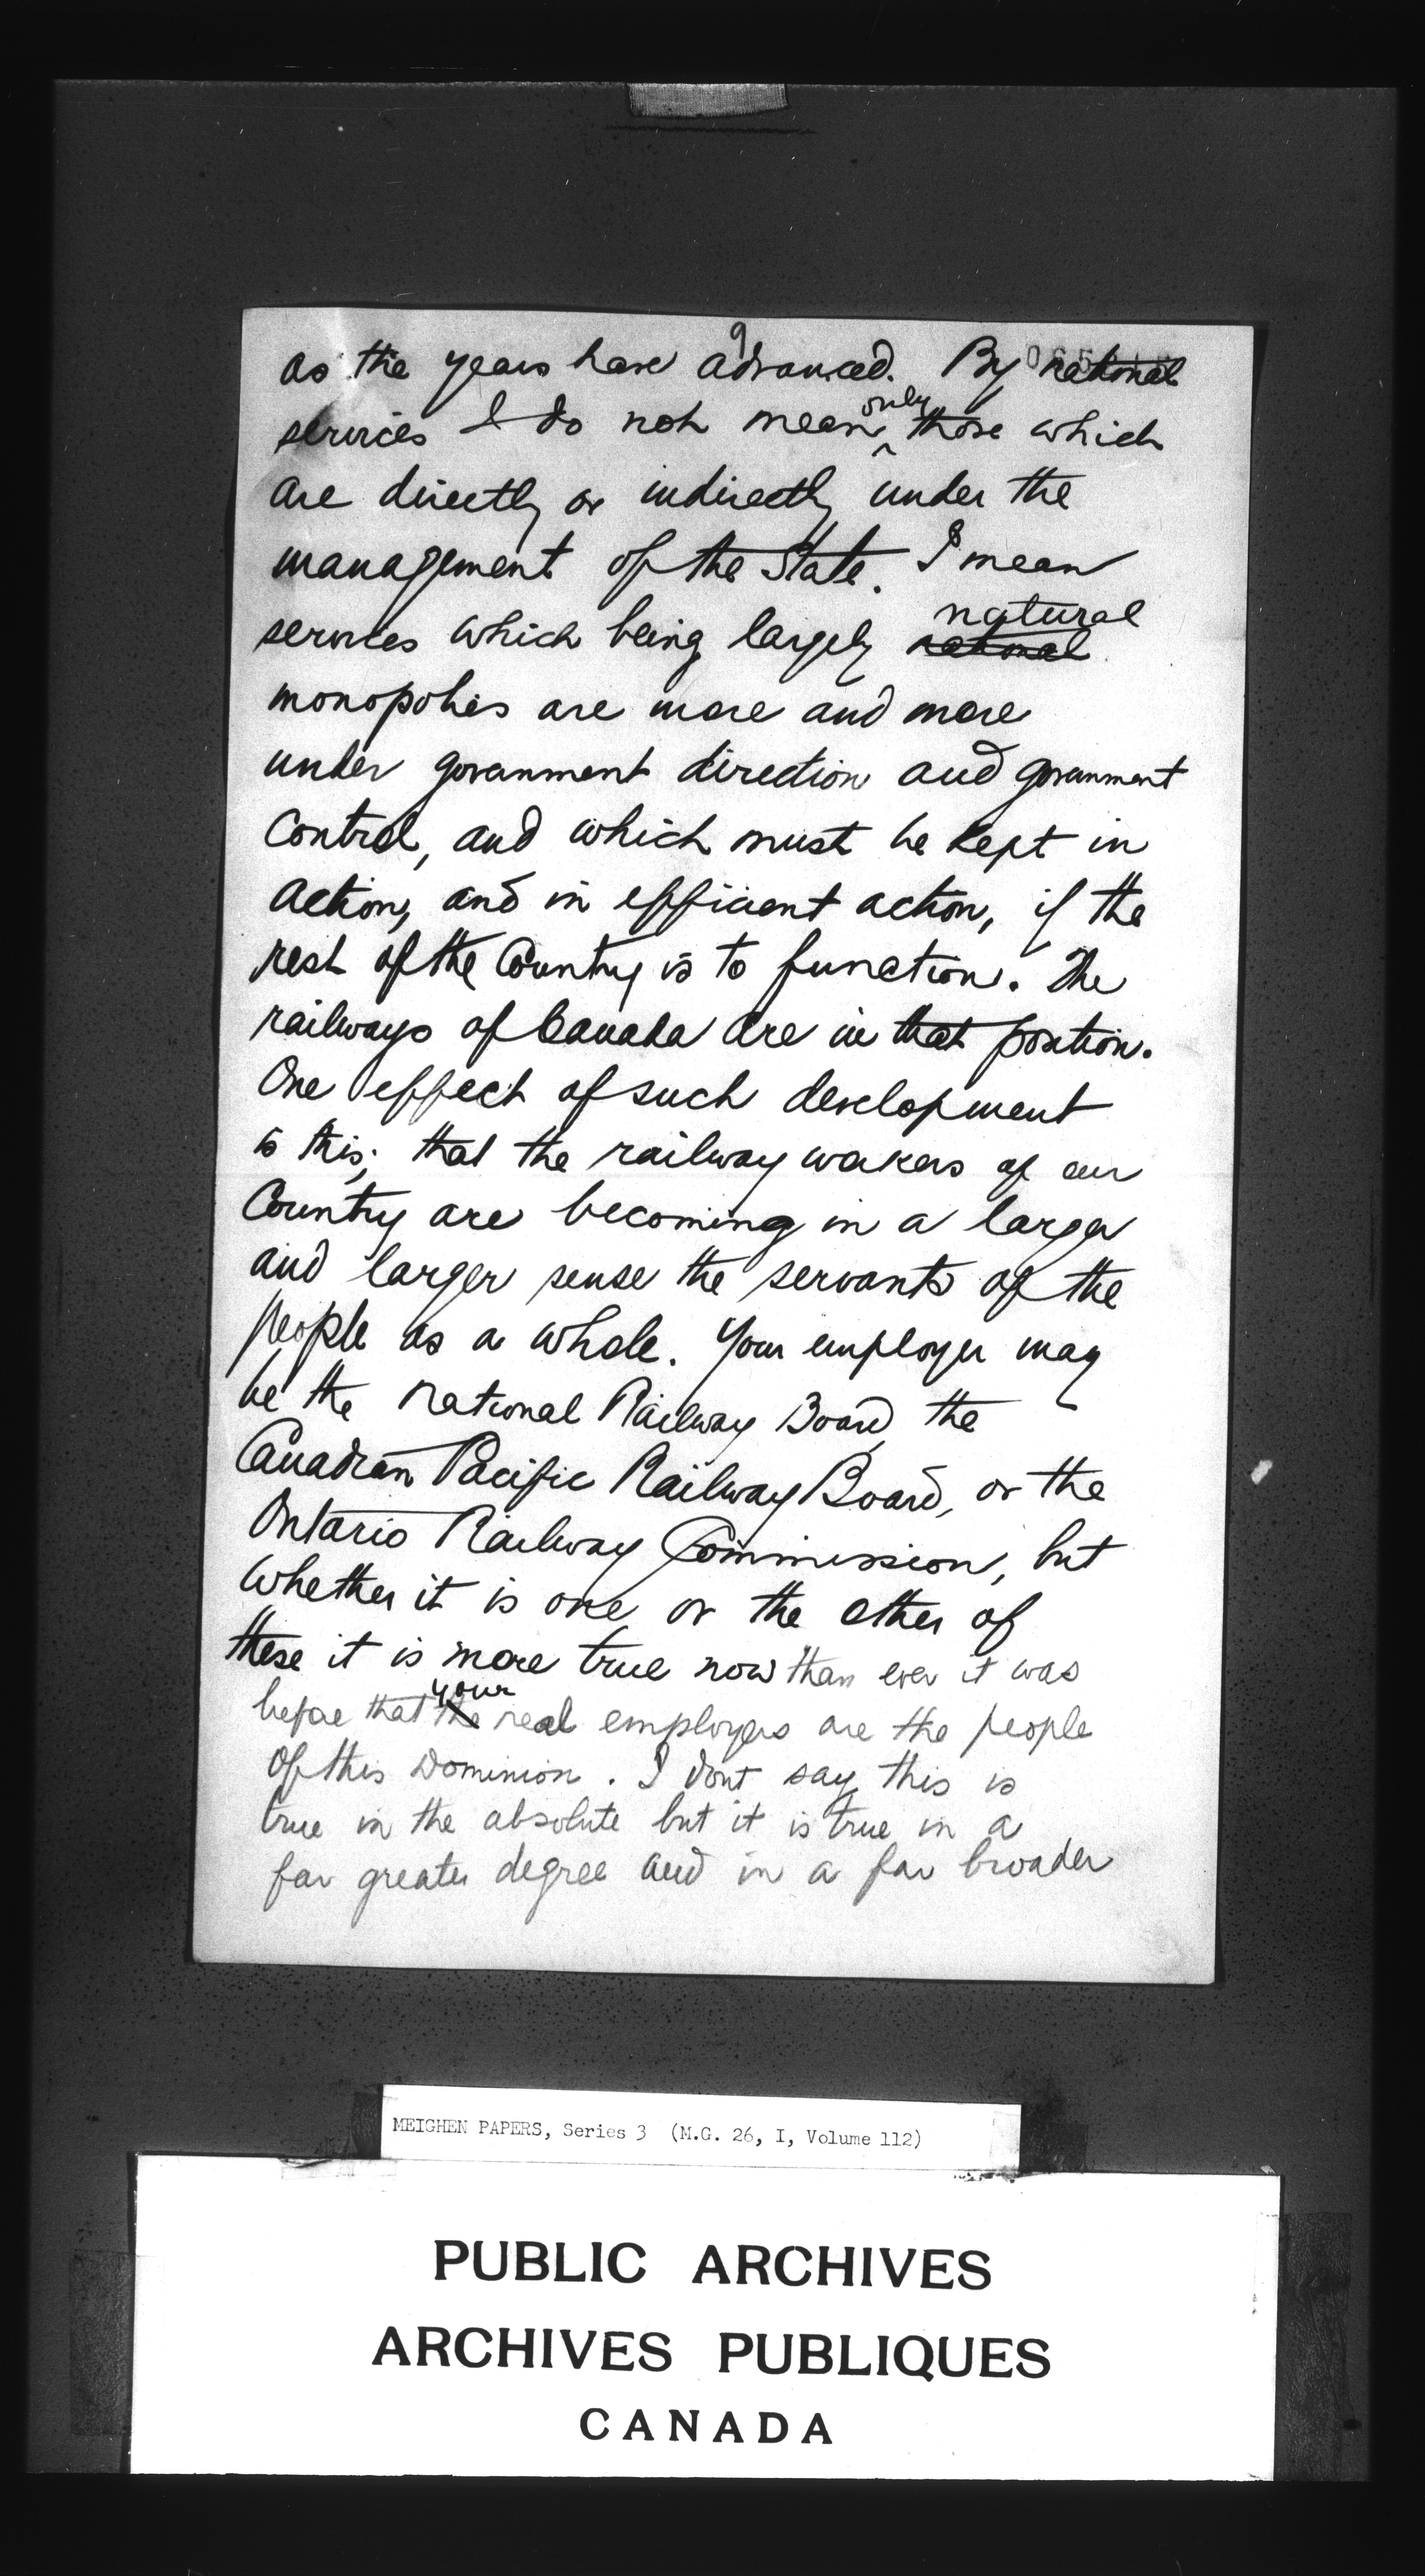 9
as the years have advanced. By national
services I do not mean only those which
are directly or indirectly under the
management of the State. I mean
services which being largely national natural
monopolies are more and more
under government direction and government
control, and which must be kept in
action, and in efficient action, if the
rest of the Country is to function. The
railways of Canada are in that position.
One effect of such development
is this; that the railway workers of our
Country are becoming in a larger
and larger sense the servants of the
people as a whole. Your employer may
be the National Railway Board, the
Canadian Pacific Railway Board, or the
Ontario Railway Commission, but
whether it is one or the other of
these it is more true now than ever it was
before that the your real employers are the people
of this Dominion. I dont say this is
true in the absolute but it is true in a
far greater degree and in a far broader
MEIGHEN PAPERS, Series 3 (M.G. 26, I, Volume 112)
PUBLIC ARCHIVES
ARCHIVES PUBLIQUES
CANADA